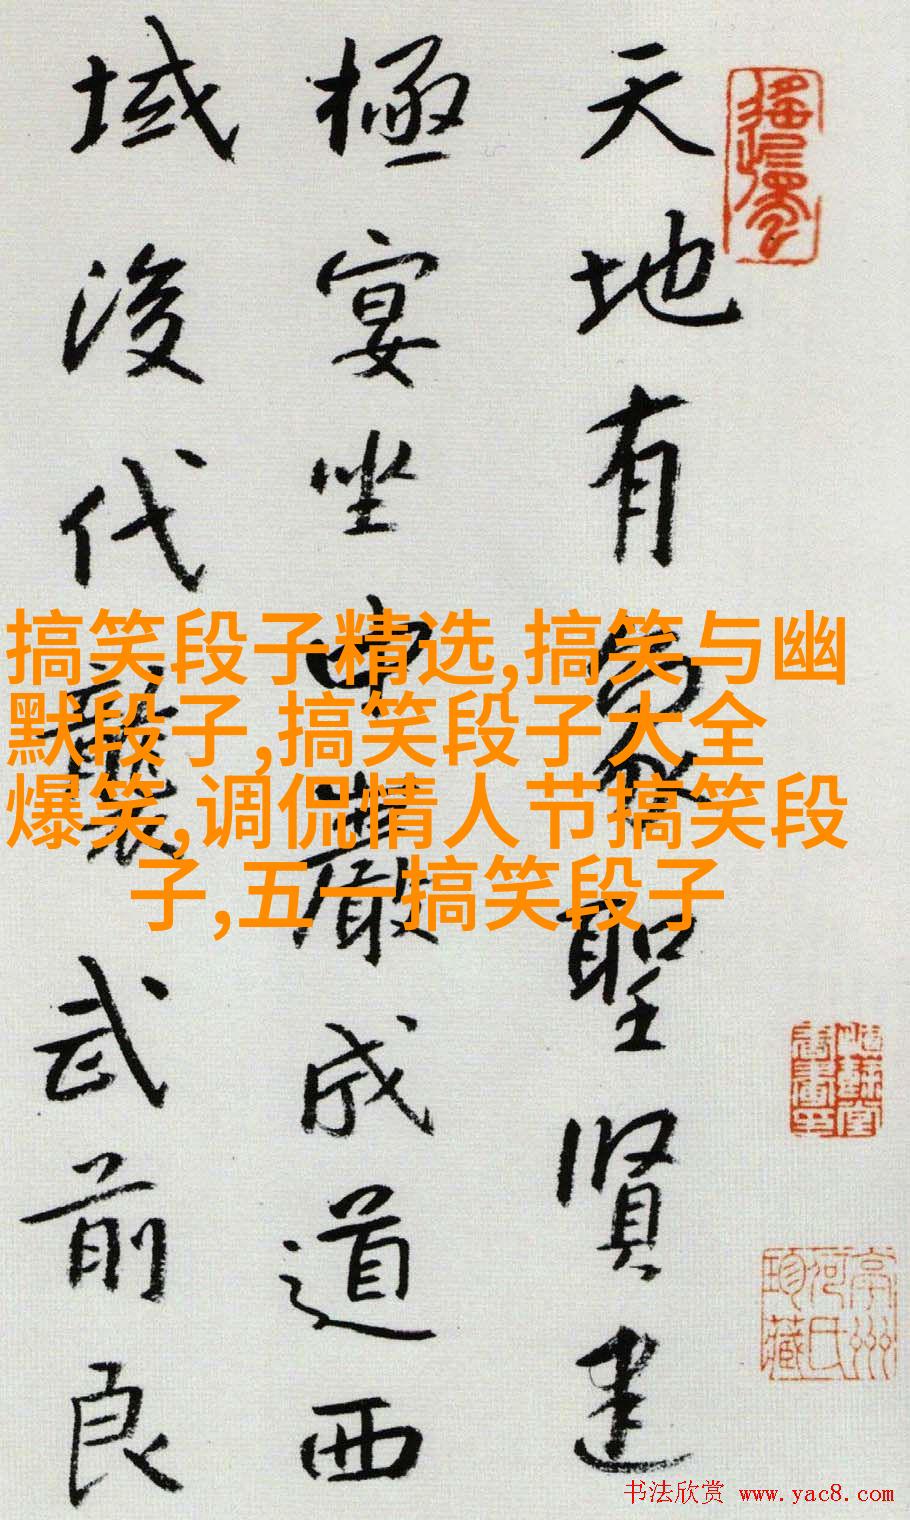 天地有象聖賢建
極宴坐中嚴成道西
域後代襲武前良
搞笑段子精选,搞笑与幽
默段子,搞笑段子大全
爆笑,调侃情人节搞笑段
子,五一搞笑段子
书法欣赏 www.yac8.com